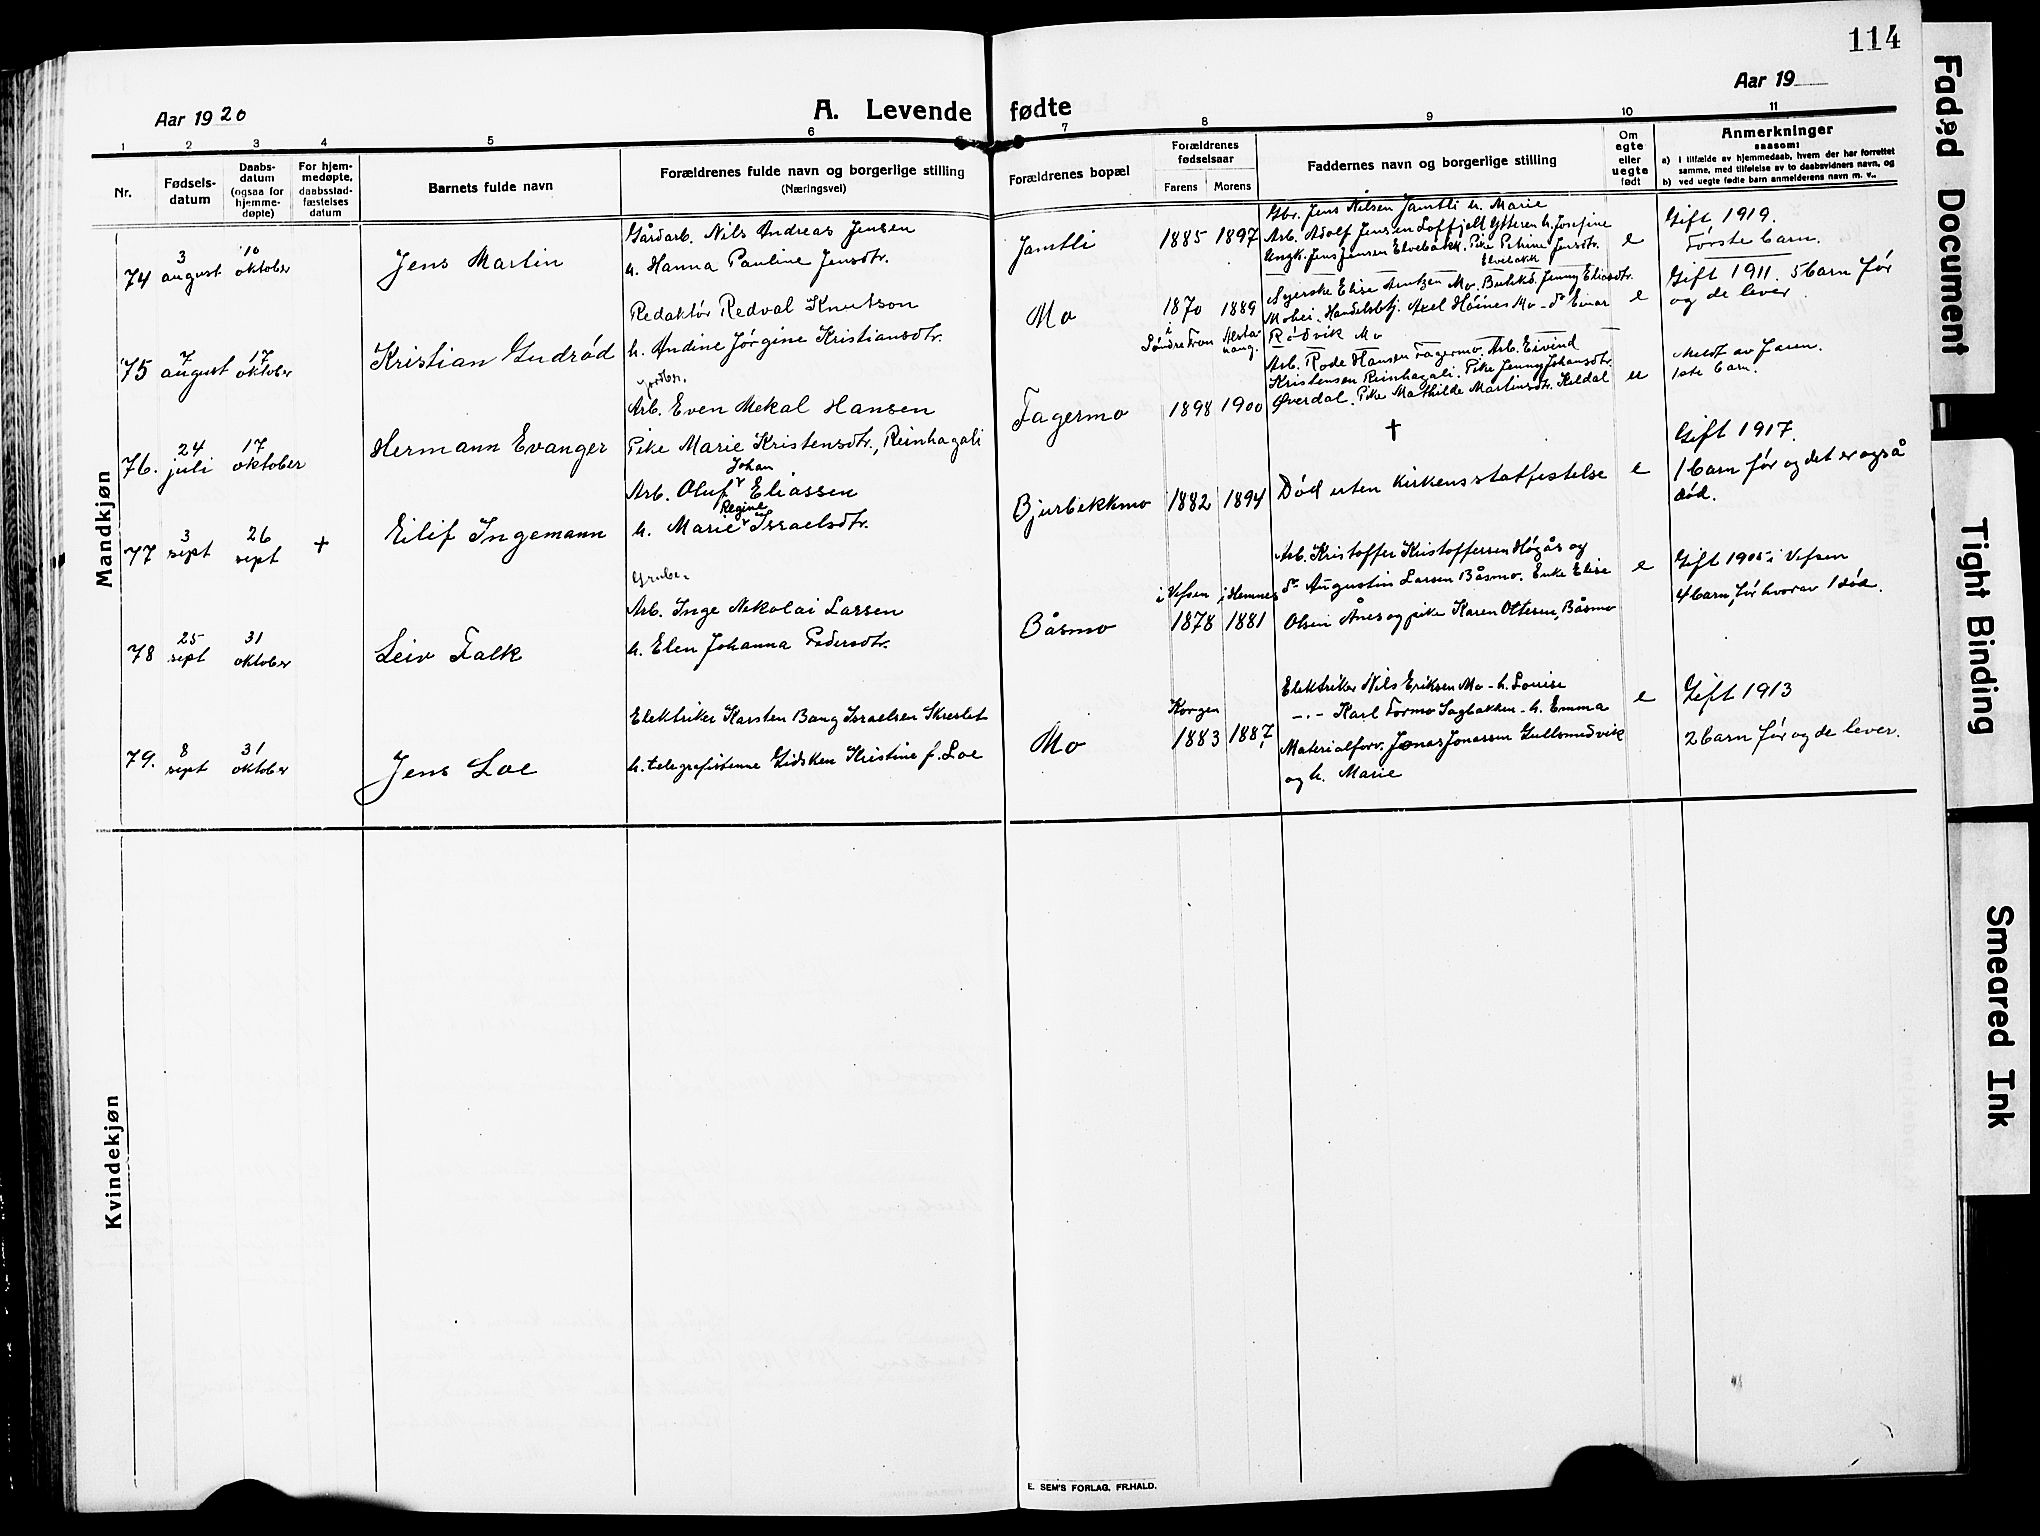 114
Aar 1920
A. Levende fødte
Aar 19
1 2 3 4 5 6 7 8 9 10 11
Nr.
Fødsels-
datum
Daabs-
datum
(ogsaa for
hjemme-
døpte)
For hjem-
medøpte,
daabsstad-
fæstelses
datum
Barnets fulde navn
Forældrenes fulde navn og borgerlige stilling
(Næringsvei)
Forældrenes bopæl
Forældrenes
fødselsaar
Farens Morens
Faddernes navn og borgerlige stilling
Om
egte
eller
uegte
født
Anmerkninger
saasom:
a) I tilfælde av hjemmedaab, hvem der har forrettet
samme, med tilføielse av to daabsvidners navn, og
b) ved uegte fødte barn anmelderens navn m. v..
Mandkjøn
74
3
august
10
oktober
Jens Martin
Gårdarb. Nils Andreas Jensen
h. Hanna Pauline Jensdtr.
Jamtli
1885 1897
Gbr. Jens Nilsen Jamtli h. Marie
Arb. Adolf Jensen Loffjell Ytteren h. Josefine
Jens Jensen Elvebakk. Pike Petrine Jensdtr.
Elvebakk
e
Gift 1919.
Første barn.
75
7
august
17
oktober
Kristian Gudrød
Redaktør Redval Knutson
h. Andine Jørgine Kristiansdtr.
Mo
1870 1889
i
Søndre Fron
Elise Arntzen Mo. Jenny Eliasdtr.
Mohei. Handelsbtj. Axel Høines Mo - do Einar
Rødvik Mo
e
Gift 1911. 5 barn før
og de lever.
76.
24
juli
17
oktober
Hermann Evanger
Jordbr.
Arb. Even Mekal Hansen
Pike Marie Kristensdtr., Reinhagali
Fagermo
1898 1900
Arb. Rode Hansen Fagermo. Arb. Eivind
Kristensen Reinhagali. Pike Jenny Johansdtr.
Øverdal. Pike Mathilde Martinsdtr. Heldal
ue
Meldt av faren.
1ste barn.
77
3
sept
26
sept
+
Eilif Ingemann
Johan
Arb. Oluf Eliassen
Regine
h. Marie Israelsdtr.
Bjurbekkmo
1882 1894
+
Død uten kirkens statfestelse
e
Gift 1917.
1 barn før og det er også
død.
78
25
sept
31
oktober
Leiv Falk
Grube.
Arb. Inge Nekolai Larsen
h. Elen Johanna Pedersdtr.
Båsmo
i Vefsen i Hemnes
1878 1881
Arb. Kristoffer Kristoffersen Høgås og
do Augustin Larsen Båsmo. Enke Elise
Olsen Ånes og pike Karen Ottesen, Båsmo
e
Gift 1905 i Vefsen
4 barn før hvorav 1 død.
79.
8
sept
31
oktober
Jens Loe
Elektriker Karsten Bang Israelsen Skreslet
h. telegrafistinne Gidsken Kristine f. Loe
Mo
Korgen
1883 1887
Elektriker Nils Eriksen Mo - h. Louise
- " - Karl Formo Sagbakken - h. Emma
Materialforv. Jonas Jonassen Gullsmedvik
og h. Marie
e
Gift 1913
2 barn før og de lever.
Kvindekjøn
E. SEM'S FORLAG, FR.HALD.
Faded Document
Tight Binding
Smeared Ink